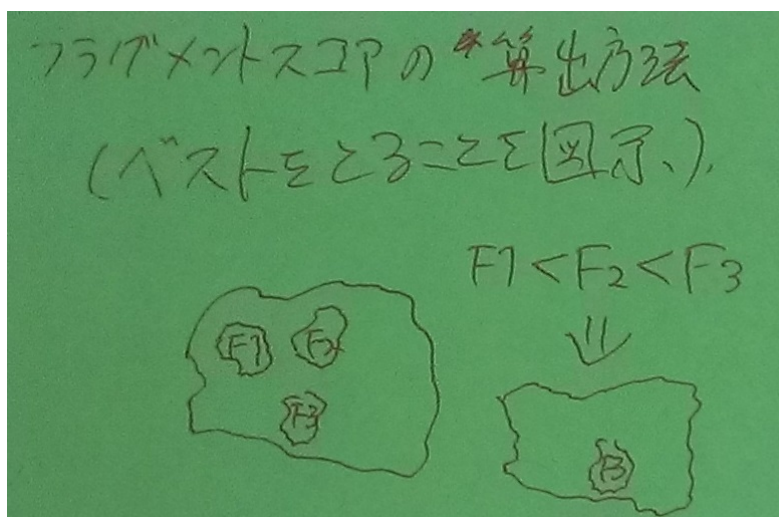 フラグメントスコアの算出方法
(ベストをとることを図示、)
F1<F2<F3
F1 F2
F3
F3